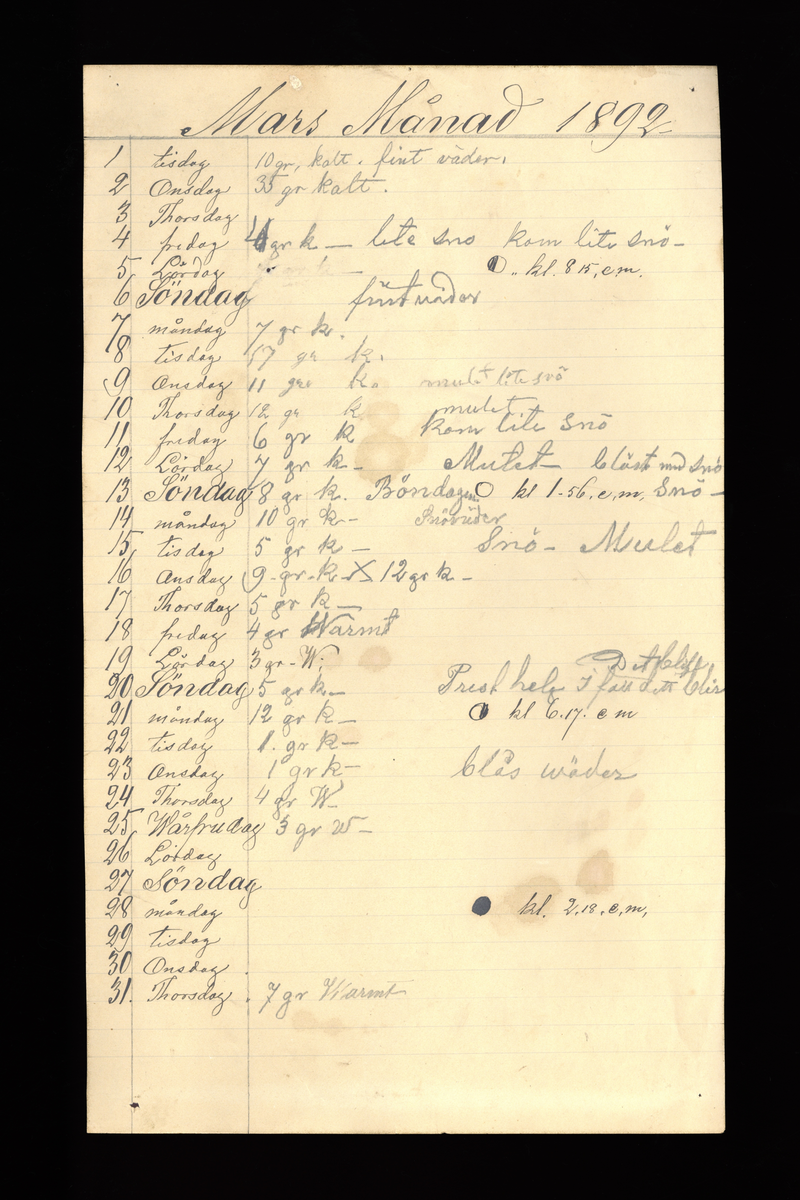 Mars Månad 1892
1 tisdag 10 gr, kalt. fint väder.
2 Onsdag 35 gr kalt.
3 Thorsdag
4 fredag 4 gr k — lite sno kom lite snö –
5 Lördag kl. 8 15, e, m.
6 Söndag fint väder
7 måndag 7 gr k.
8 tisdag 17 gr k.
9 Onsdag 11 gr k. mulet lite snö
10 Thorsdag 12 gr k mulet
11 fredag 6 gr k kom lite Snö
12 Lördag 7 gr k – Mulet – blåst med snö
13 Söndag 8 gr k. Böndagen kl 1-56. e, m, Snö –
14 måndag 10 gr k – Snöväder
15 tisdag 5 gr k – Snö – Mulet
16 Onsdag 9 – gr – k – X 12 gr k –
17 Thorsdag 5 gr k —
18 fredag 4 gr Warmt
19 Lördag 3 gr – W.
20 Söndag 5 gr k –
21 måndag 12 gr k – kl 6.17. e m
22 tisdag 1. gr k –
23 Onsdag 1 gr k – blås wäder
24 Thorsdag 4 gr W.
25 Wårfrudag 3 gr w –
26 Lördag
27 Söndag
28 måndag kl. 2.18, e, m,
29 tisdag
30 Onsdag.
31. Thorsdag. 7 gr Warmt